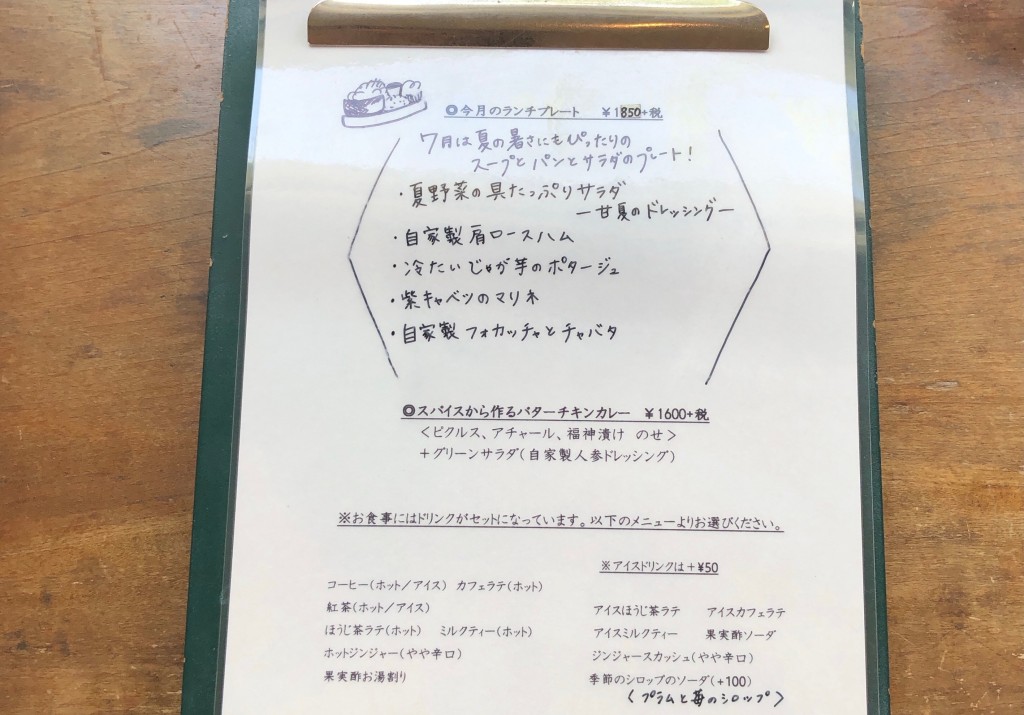 ◎今月のランチプレート ¥1850+税
7月は夏の暑さにもぴったりの
スープとパンとサラダのプレート!
・夏野菜の具たっぷりサラダ
ー甘夏のドレッシングー
・自家製肩ロースハム
・冷たいじゃが芋のポタージュ
・紫キャベツのマリネ
・自家製フォカッチャとチャバタ
◎スパイスから作るバターチキンカレー ¥1600+税
<ピクルス、アチャール、福神漬け のせ>
+グリーンサラダ(自家製人参ドレッシング)
※お食事にはドリンクがセットになっています。以下のメニューよりお選びください。
コーヒー(ホット/アイス) カフェラテ(ホット)
紅茶(ホット/アイス)
ほうじ茶ラテ(ホット) ミルクティー(ホット)
ホットジンジャー(やや辛口)
果実酢お湯割り
※アイスドリンクは+¥50
アイスほうじ茶ラテ アイスカフェラテ
アイスミルクティー 果実酢ソーダ
ジンジャースカッシュ(やや辛口)
季節のシロップのソーダ(+100)
<プラムと苺のシロップ>